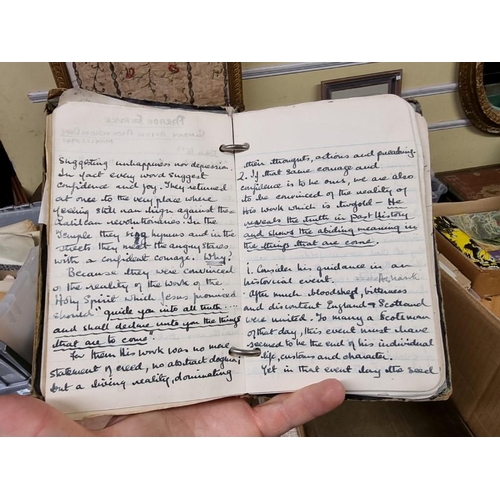 suggesting unhappiness nor depression.
In fact every word suggest
confidence and joy. They returned
at once to the very place where
feeling still ran high against the
Galilean revolutionaries. In the
Temple they sang hymns and in the
streets they meet the angry stares
with a confident courage. Why?
Because they were convinced
of the reality of the work of the
Holy Spirit which Jesus promised
should "guide you into all truth...
and shall declare unto you the things
that are to come."
For them His work was no mere
statement of creed, no abstract dogma;
but a living reality, dominating
their thoughts, actions and preaching.
2. If that same courage and
confidence is to be ours, we are also
to be convinced of the reality of
His work which is twofold - He
reveals the truth in past history
and shows the abiding meaning in
the things that are come.
1. Consider his guidance in an
historical event.
After much bloodshed, bitterness
and discontent England & Scotland
were united. To many a Scotsman
of that day, this event must have
seemed to be the end of his individual
life, customs and character.
Yet in that event day the seed